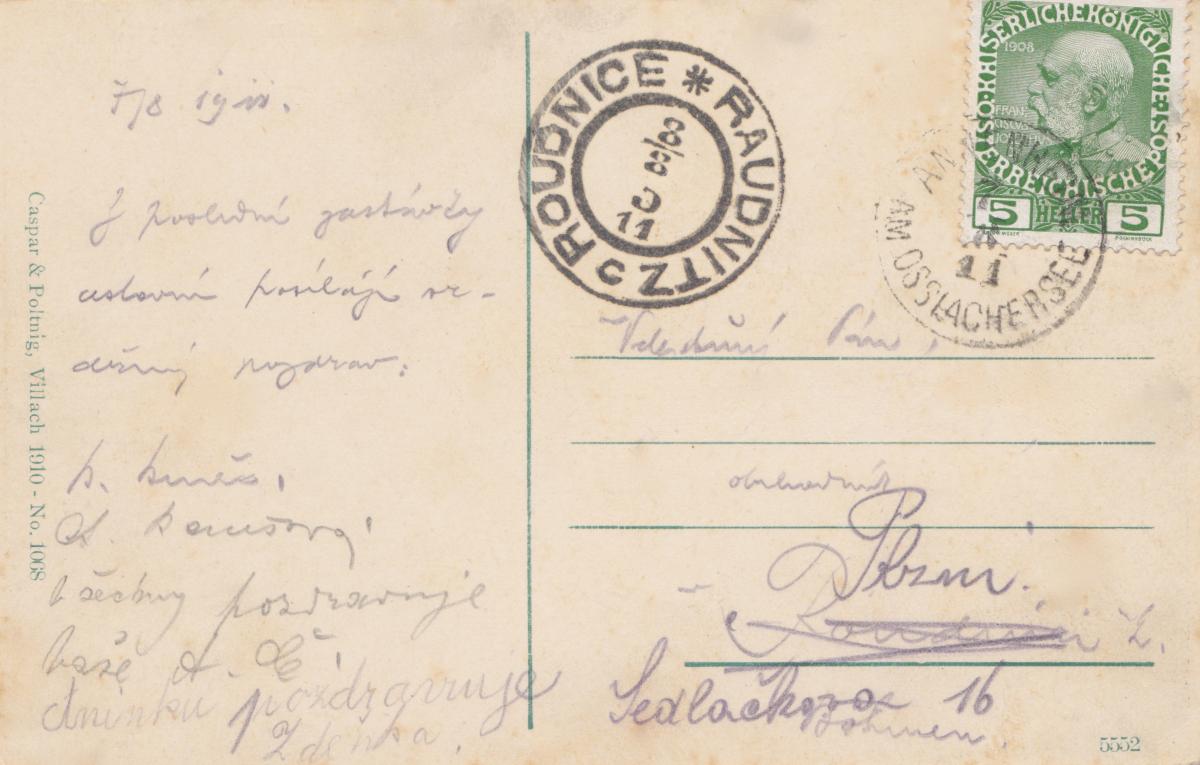 7/8 1911.
Z poslední zastávky
cestovní posílají sr-
dečný pozdrav:
všechny pozdravuje
Vaše A. Č.
pozdravuje
Zdenka.
Caspar & Poltnig, Villach 1910 - No. 1068
ROUDNICE * RAUDNITZ
8/8
11
KAISERLICHEKÖNIGLICHE
ÖSTERREICHISCHE POST
1908
5 HELLER 5
AM OSSIACHERSEE
11
Velectěný Pán,
obchodník
Plzni.
Roudnici
Sedláčkova 16
Böhmen.
5552